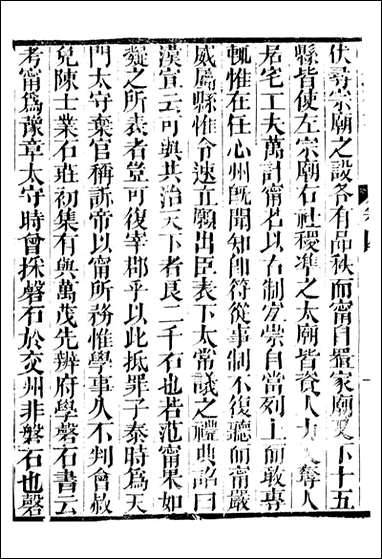 伏尋宗廟之設各有品秩而甯自置家廟又下十五
縣皆使左宗廟右社稷準之太廟皆資人力又奪人
居宅工夫萬計甯若以古制宜崇自當列上而敢專
輒惟在任心州旣聞知卽符從事制不復聽而甯嚴
威屬縣惟令速立願出臣表下太常議之禮典詔曰
漢宣云可與共治天下者良二千石也若范甯果如
凝之所表者豈可復宰郡乎以此抵罪子泰時爲天
門太守棄官稱訴帝以甯所務惟學事久不判會赦
免陳士業石莊初集有與萬茂先辨府學磬石書云
考甯爲豫章太守時會採磬石於交州非磐石也磬